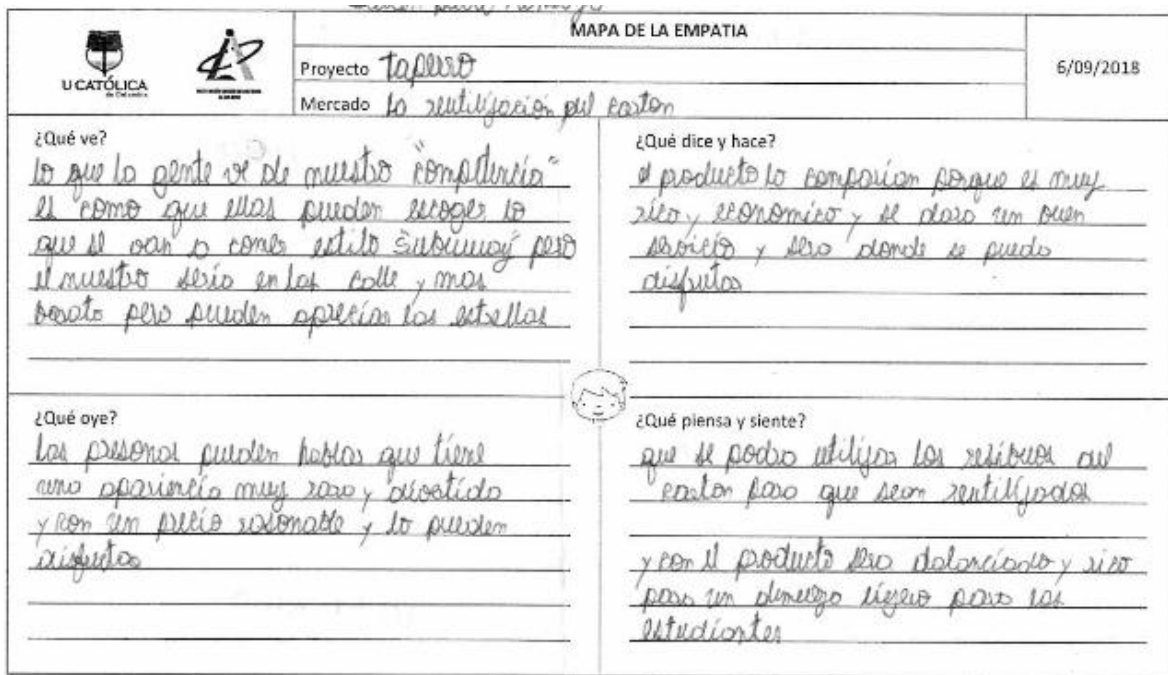 MAPA DE LA EMPATIA
U CATÓLICA
de Colombia
Proyecto
6/09/2018
Mercado la reutilización del carton
¿Qué ve?
lo que la gente ve de nuestro "competencia"
es como que ellas pueden escoger lo
que se van a comer estilo "subwuay" pero
el nuestro serio en las calle y mas
barato pero pueden apreciar las estrellas
¿Qué dice y hace?
el producto lo comparian porque es muy
rico y economico y se dara un buen
servicio y sera donde se pueda
disfrutar
¿Qué oye?
las presonas pueden hablar que tiene
una apariencia muy rara y divertida
y con un precio rasonable y lo pueden
disfrutar
¿Qué piensa y siente?
que se podra utilizar los resibuos del
carton para que sean reutilizados
y con el producto sera dalanciado y rico
para un dmuerzo ligero para los
estudiantes